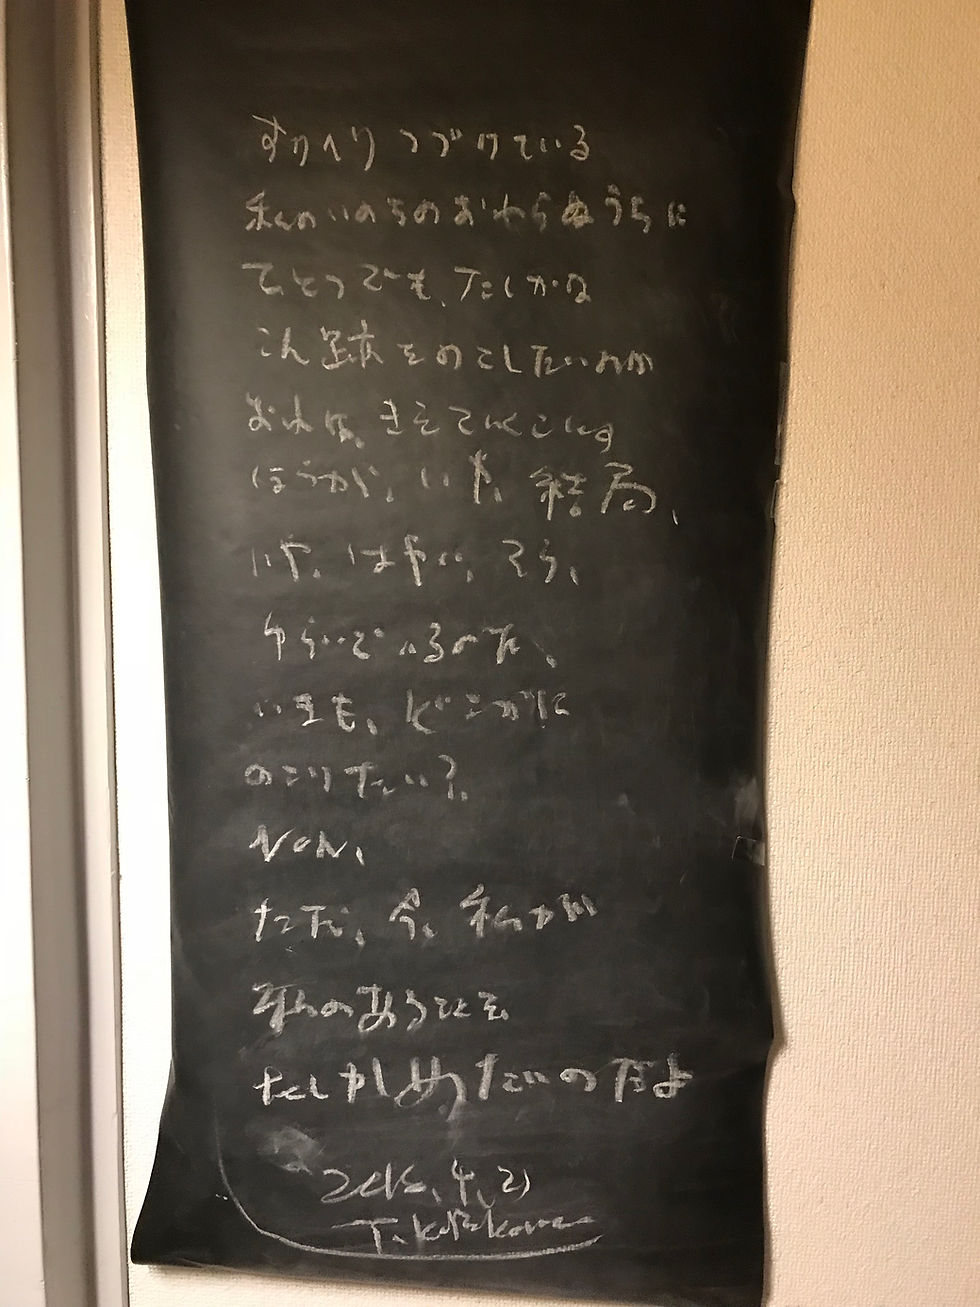 すりへりつづけている
私のいのちのおわらぬうちに
ひとつでも、たしかな
こん跡をのこしたいのか
おれは、
ほうが、いや、結局、
いや、はやい、そら、
ゆらいでいるのだ、
いまも、どこかに
のこりたい？
Non,
ただ、今、私が
私のあることを
たしかしめたいのだよ